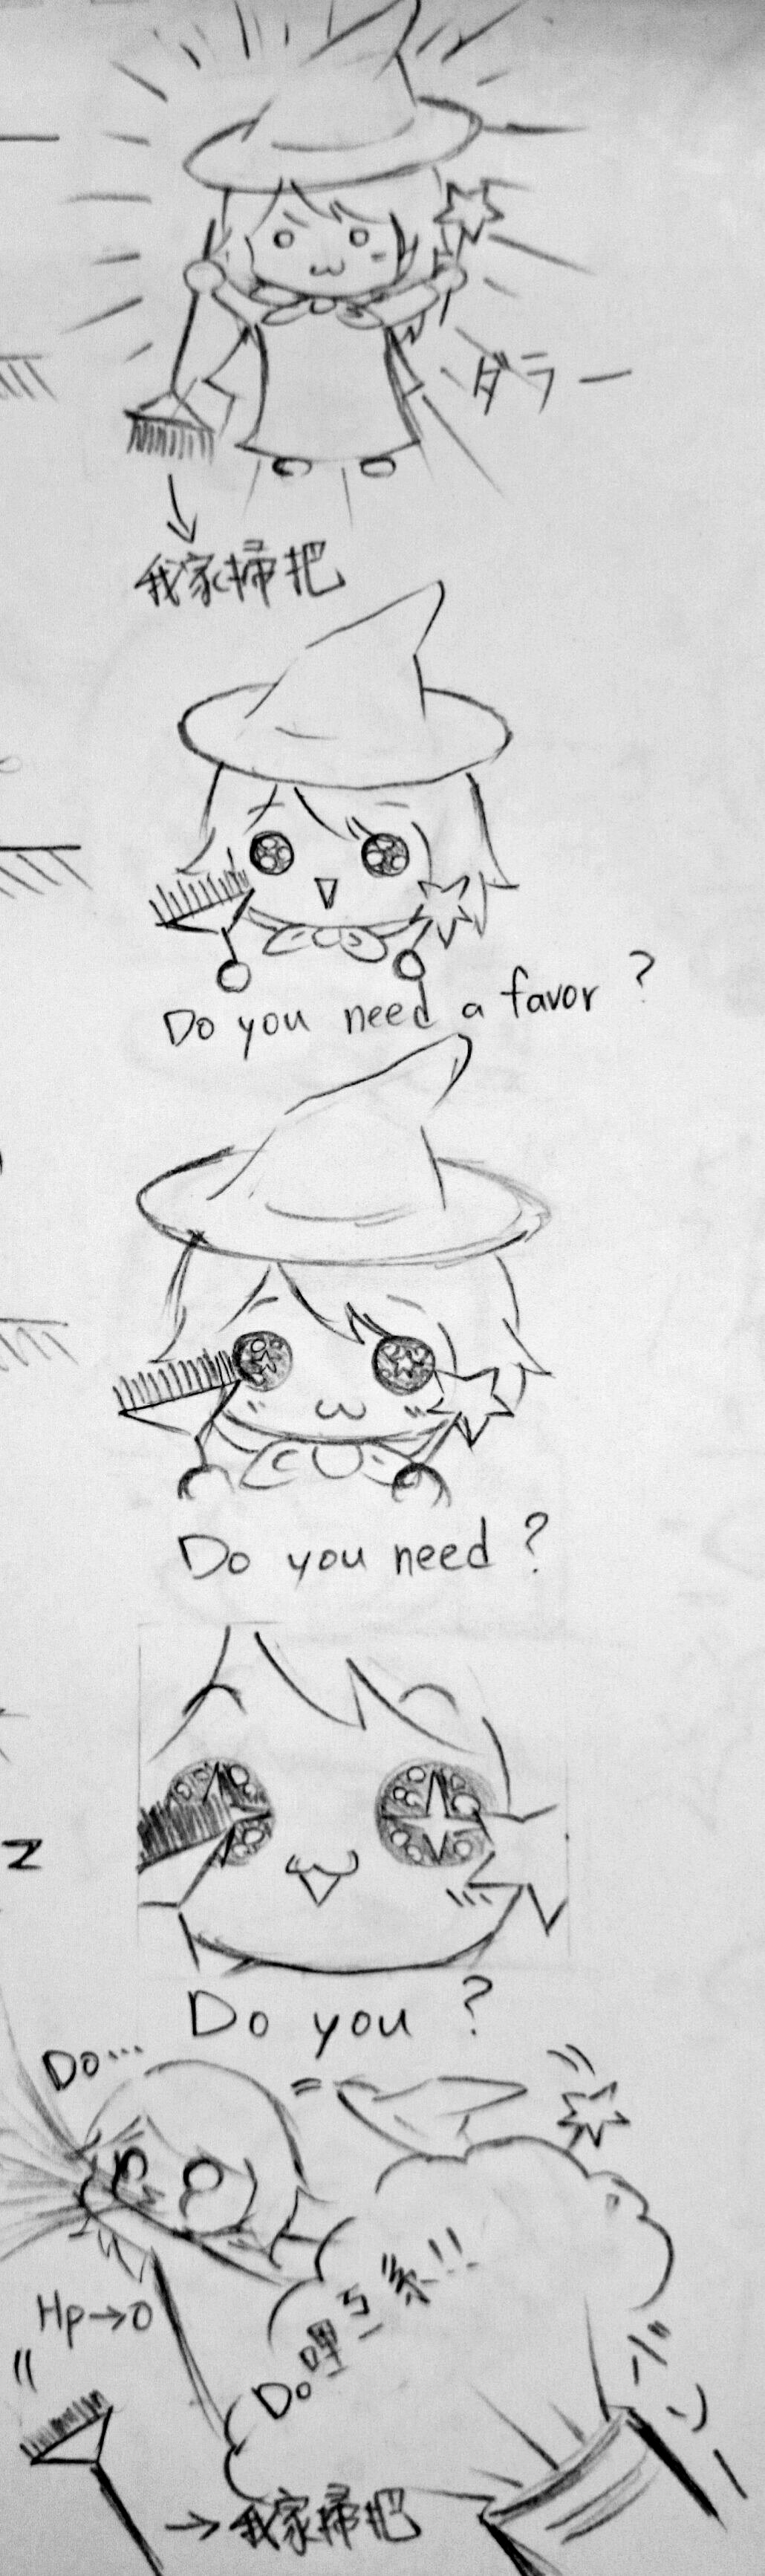 ダラー
我家掃把
Do you need a favor ?
Do you need ?
Do you ?
Do...
Hp→0
Do哩
→我家掃把